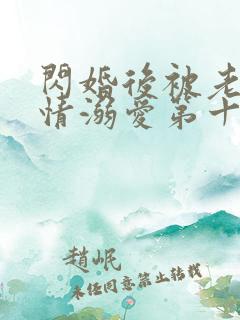 閃婚後被老
情溺愛第十
趙岷
未任同意禁止轉載